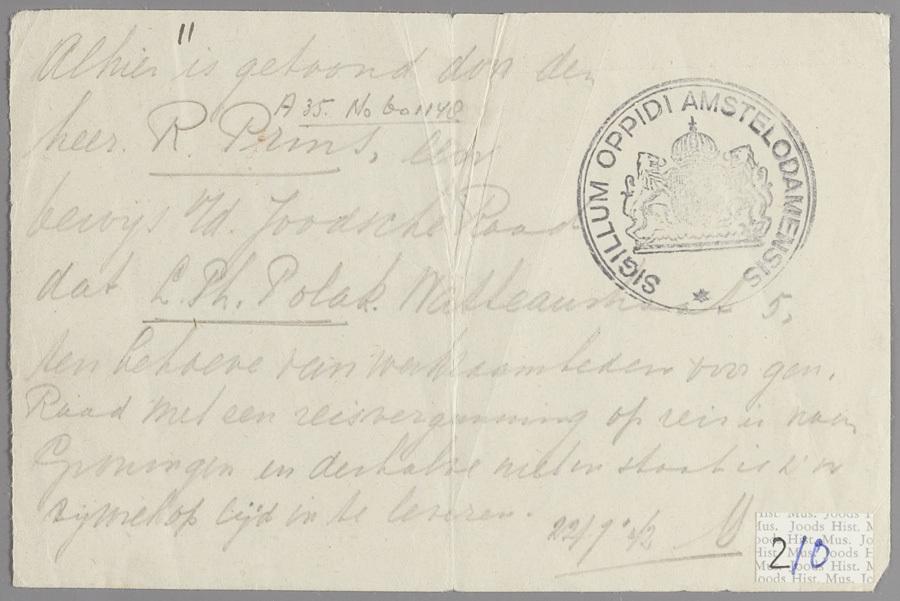 Alhier is getoond door den
A 35. No 601148
heer. R. Prins, een
bewijs v/d. Joodsche Raad
dat L. Ph. Polak. Watteaustraat 5,
ten behoeve van werkzaamheden voor gen.
Raad met een reisvergunning op reis is naar
Groningen en derhalve niet in staat is z'n
rijwiel op tijd in te leveren.
22/7 '42
SIGILLUM OPPIDI AMSTELODAMENSIS
Joods Hist. Mus.
2/10